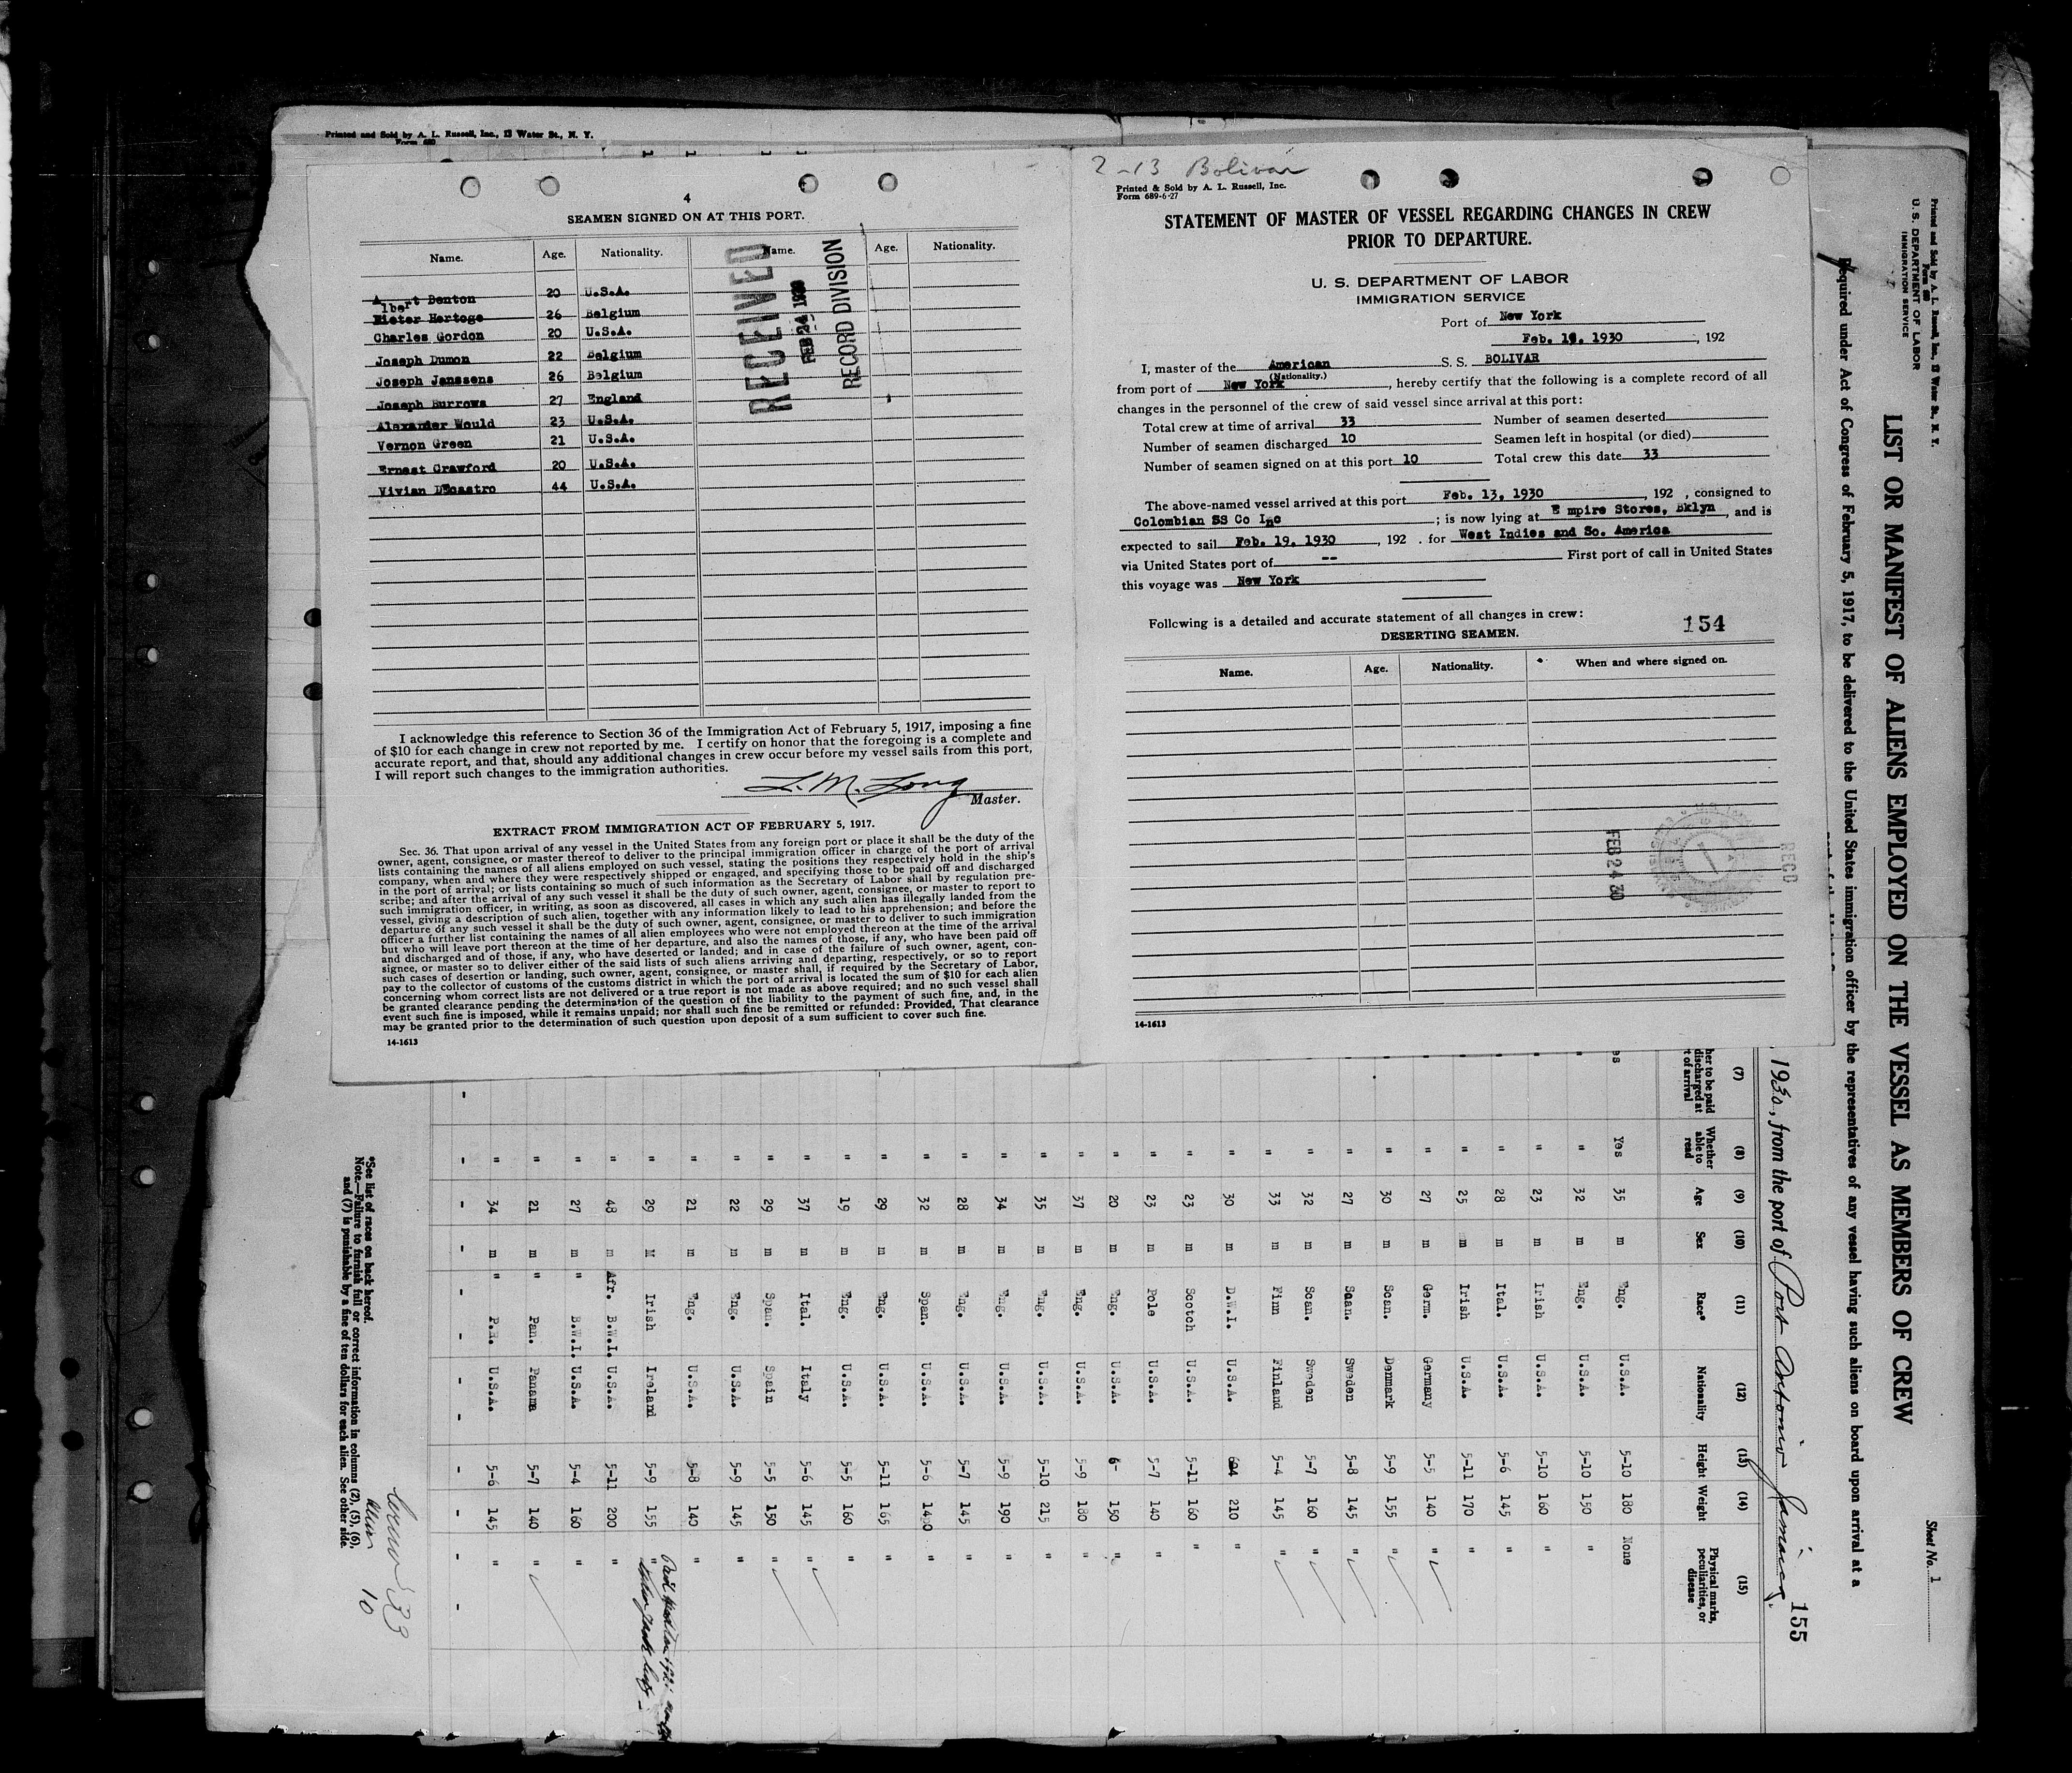 Printed and Sold by A. L. Russell, Inc., 13 Water St., N. Y.
Form 680
4
SEAMEN SIGNED ON AT THIS PORT.
Name. Age. Nationality. Name. Age. Nationality.
Albert Benton 20 U.S.A.
Pieter Hertoge 26 Belgium
Charles Gordon 20 U.S.A.
Joseph Dumon 22 Belgium
Joseph Janssens 26 Belgium
Joseph Burrows 27 England
Alexander Would 23 U.S.A.
Vernon Green 21 U.S.A.
Ernest Crawford 20 U.S.A.
Vivian DEcastro 44 U.S.A.
RECEIVED
FEB 24 1930
RECORD DIVISION
I acknowledge this reference to Section 36 of the Immigration Act of February 5, 1917, imposing a fine
of $10 for each change in crew not reported by me. I certify on honor that the foregoing is a complete and
accurate report, and that, should any additional changes in crew occur before my vessel sails from this port,
I will report such changes to the immigration authorities.
L. M. Long
Master.
EXTRACT FROM IMMIGRATION ACT OF FEBRUARY 5, 1917.
Sec. 36. That upon arrival of any vessel in the United States from any foreign port or place it shall be the duty of the
owner, agent, consignee, or master thereof to deliver to the principal immigration officer in charge of the port of arrival
lists containing the names of all aliens employed on such vessel, stating the positions they respectively hold in the ship's
company, when and where they were respectively shipped or engaged, and specifying those to be paid off and discharged
in the port of arrival; or lists containing so much of such information as the Secretary of Labor shall by regulation pre-
scribe; and after the arrival of any such vessel it shall be the duty of such owner, agent, consignee, or master to report to
such immigration officer, in writing, as soon as discovered, all cases in which any such alien has illegally landed from the
vessel, giving a description of such alien, together with any information likely to lead to his apprehension; and before the
departure of any such vessel it shall be the duty of such owner, agent, consignee, or master to deliver to such immigration
officer a further list containing the names of all alien employees who were not employed thereon at the time of the arrival
but who will leave port thereon at the time of her departure, and also the names of those, if any, who have been paid off
and discharged and of those, if any, who have deserted or landed; and in case of the failure of such owner, agent, con-
signee, or master so to deliver either of the said lists of such aliens arriving and departing, respectively, or so to report
such cases of desertion or landing, such owner, agent, consignee, or master shall, if required by the Secretary of Labor,
pay to the collector of customs of the customs district in which the port of arrival is located the sum of $10 for each alien
concerning whom correct lists are not delivered or a true report is not made as above required; and no such vessel shall
be granted clearance pending the determination of the question of the liability to the payment of such fine, and, in the
event such fine is imposed, while it remains unpaid; nor shall such fine be remitted or refunded: Provided, That clearance
may be granted prior to the determination of such question upon deposit of a sum sufficient to cover such fine.
14-1613
2-13 Bolivar
Printed & Sold by A. L. Russell, Inc.
Form 689-6-27
STATEMENT OF MASTER OF VESSEL REGARDING CHANGES IN CREW
PRIOR TO DEPARTURE.
U. S. DEPARTMENT OF LABOR
IMMIGRATION SERVICE
Port of New York
Feb. 19. 1930, 192
I, master of the American S. S. BOLIVAR
(Nationality.)
from port of New York, hereby certify that the following is a complete record of all
changes in the personnel of the crew of said vessel since arrival at this port:
Total crew at time of arrival 33 Number of seamen deserted
Number of seamen discharged 10 Seamen left in hospital (or died)
Number of seamen signed on at this port 10 Total crew this date 33
The above-named vessel arrived at this port Feb. 13, 1930, 192 , consigned to
Colombian SS Co Inc ; is now lying at E mpire Stores, Bklyn, and is
expected to sail Feb. 19, 1930, 192 . for West Indies and So. America
via United States port of -- First port of call in United States
this voyage was New York
Following is a detailed and accurate statement of all changes in crew:
154
DESERTING SEAMEN.
Name. Age. Nationality. When and where signed on.
FEB 24 30
RECD
14-1613
Printed and Sold by A. L. Russell, Inc., 13 Water St., N. Y.
Form 680
U. S. DEPARTMENT OF LABOR
IMMIGRATION SERVICE
Sheet No. 1
LIST OR MANIFEST OF ALIENS EMPLOYED ON THE VESSEL AS MEMBERS OF CREW
Required under Act of Congress of February 5, 1917, to be delivered to the United States immigration officer by the representatives of any vessel having such aliens on board upon arrival at a
155
, 1930, from the port of Port Antonio Jamaica.
(7) (8) (9) (10) (11) (12) (13) (14) (15)
her to be paid discharged at t of arrival Whether able to read Age Sex Race* Nationality Height Weight Physical marks, peculiarities, or disease
es Yes 35 m Eng. U.S.A. 5-10 180 None
" " 32 m Eng. U.S.A. 5-10 150 "
" " 23 m Irish U.S.A. 5-10 160 "
" " 28 m Ital. U.S.A. 5-6 145 "
" " 25 m Irish U.S.A. 5-11 170 "
" " 27 m Germ. Germany 5-5 140 "
" " 30 m Scan. Denmark 5-9 155 "
" " 27 m Scan. Sweden 5-8 145 "
" " 32 m Scan. Sweden 5-7 160 "
" " 33 m Finn Finland 5-4 145 "
" " 30 m D.W.I. U.S.A. 604 210 "
" " 23 m Scotch U.S.A. 5-11 160 "
" " 23 m Pole U.S.A. 5-7 140 "
" " 20 m Eng. U.S.A. 6- 150 "
" " 37 m Eng. U.S.A. 5-9 180 "
" " 35 m Eng. U.S.A. 5-10 215 "
" " 34 m Eng. U.S.A. 5-9 190 "
" " 28 m Eng. U.S.A. 5-7 145 "
" " 32 m Span. U.S.A. 5-6 140 "
" " 29 m Eng. U.S.A. 5-11 165 "
" " 19 m Eng. U.S.A. 5-5 160 "
" " 37 m Ital. Italy 5-6 145 "
" " 29 m Span. Spain 5-5 150 "
" " 22 m Eng. U.S.A. 5-9 145 "
" " 21 m Eng. U.S.A. 5-8 140 "
" " 29 M Irish Ireland 5-9 155 "
" " 48 m Afr. B.W.I. U.S.A. 5-11 200 "
" " 27 m " B.W.I. U.S.A. 5-4 160 "
" " 21 m " Pan. Panama 5-7 140 "
" " 34 m " P.R. U.S.A. 5-6 145 "
- - - - - - - - -
*See list of races on back hereof.
Note.—Failure to furnish full or correct information in columns (2), (5), (6),
and (7) is punishable by a fine of ten dollars for each alien. See other side.
Crew 33
10